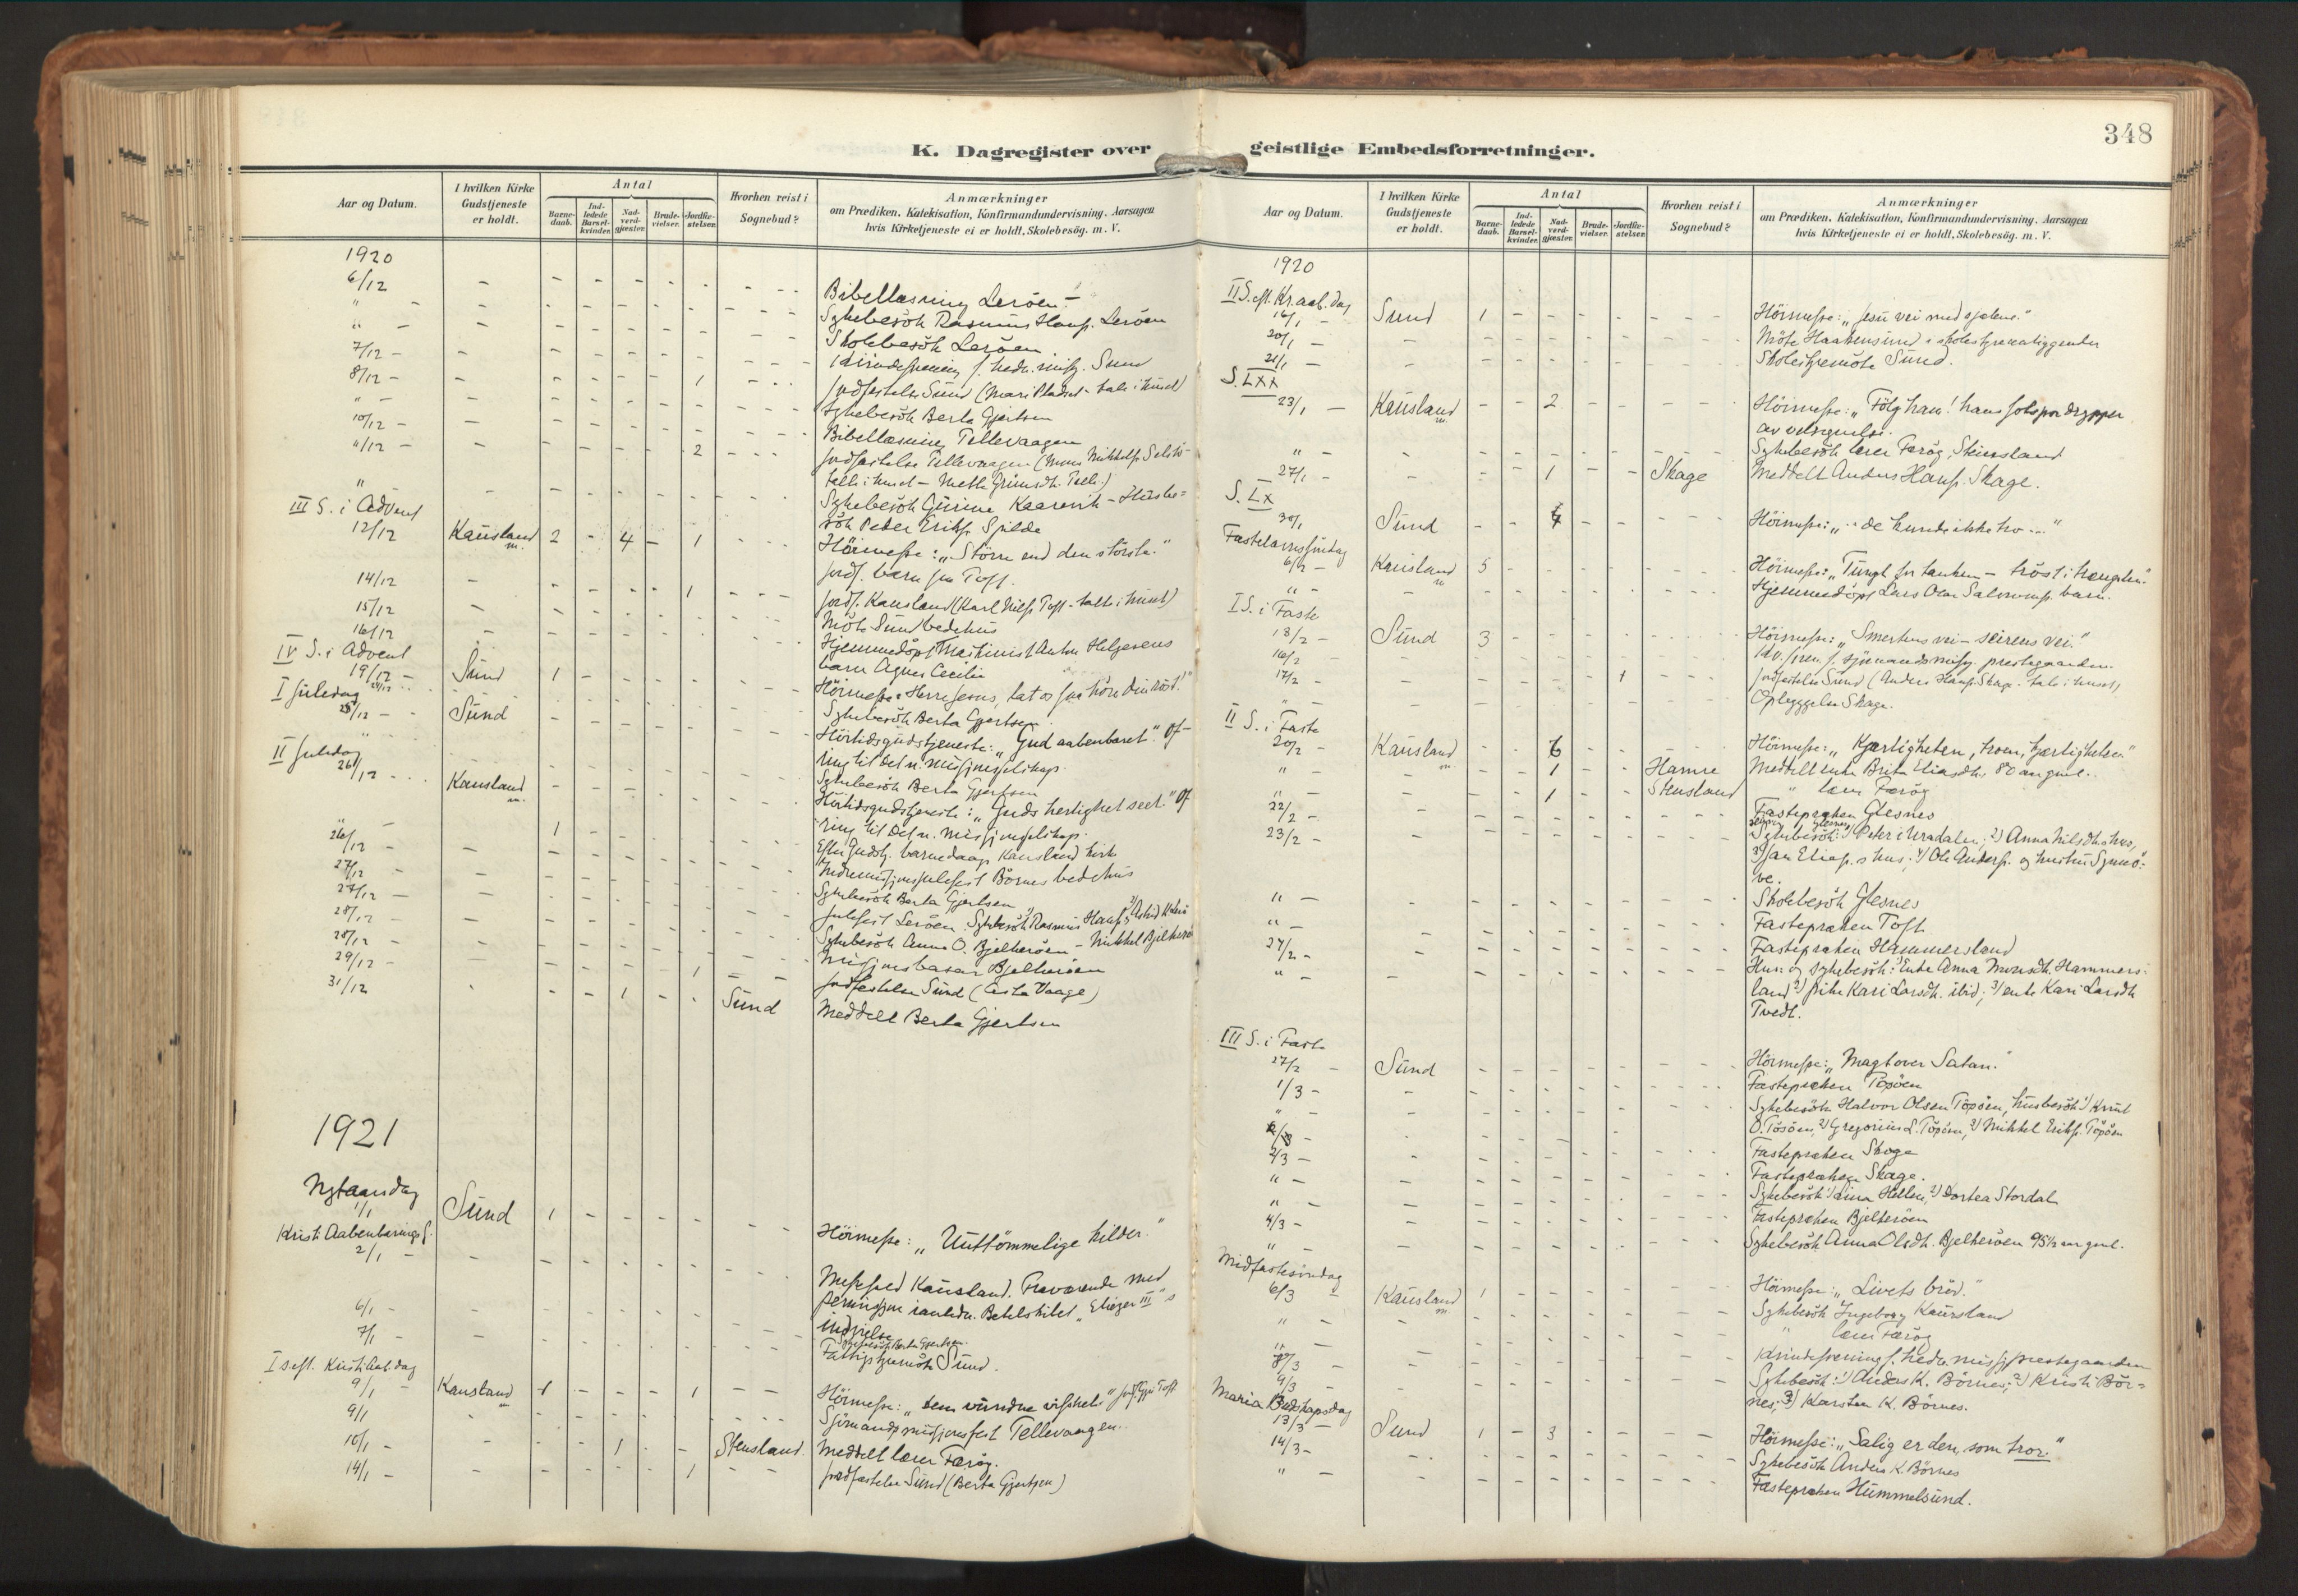 348
K. Dagregister over geistlige Embedsforretninger.
Aar og Datum.
I hvilken Kirke Gudstjeneste er holdt.
Antal
Barne-daab.
Ind-ledede Barsel-kvinder.
Nad-verd-gjæster.
Brude-vielser.
Jordfæ-stelser.
Hvorhen reist i Sognebud?
Anmærkninger
om Prædiken, Katekisation, Konfirmandundervisning, Aarsagen
hvis Kirketjeneste ei er holdt, Skolebesøg. m. V.
1920
6/12 - Bibellæsning Leröen
" - Sykebesök Rasmus Hanss. Leröen
" - Skolebesök Leröen
7/12 - f. hedn. miss. Sund
8/12 - 1 Jordfæstelse Sund (Mari - tale i huset)
" - Sykebesök Berta Gjertsen
10/12 - Bibellæsning Tellevaagen
11/12 - 2 Jordfæstelse Tellevaagen (Mons Mikkels.
tale i huset -
" Sykebesök Gurine Kaarevik - Husbe=
sök Peder Eriks. Spilde
III S. i Advent
12/12 Kausland 2 - 4 - 1 Höimesse: "Större end den störste."
Jordf. barn fra Toft.
14/12 - 1 Jordf. Kausland (Karl Nilss. Toft - tale i huset)
15/12 - Möte Sund bedehus
16/12 - Hjemmedöpt Maskinist Anton Helgesens
barn Agnes Cecilie
IV S. i Advent
19/12 - Sund 1 Höimesse: Herre Jesus, lat os faa höre din röst!"
Sykebesök Berta Gjertsen
I Juledag
25/12 - Sund Höitidsgudstjeneste: "Gud aabenbaret". Of-
ring til Det n. missjonsselskap.
" Sykebesök Berta Gjertsen
II Juledag
26/12 Kausland Höitidsgudstjeneste: "Guds herlighet seet." Of
ring til Det n. missjonsselskap.
" 1 Efter Gudstj. barnedaap Kausland kirke
26/12 - Indremissjonsjulefest Börnes bedehus
27/12 - Sykebesök Berta Gjertsen
27/12 - Julefest Leröen. Sykebesök Rasmus Hanss.
28/12 - Sykebesök Anna O. Bjelkeröen - Mikkel Bjelkerö
28/12 - Missjonsbasar Bjelkeröen
29/12 - 1 Jordfæstelse Sund (Vaage)
31/12 1 Sund Meddelt Berta Gjertsen
1921
Nytaarsdag
1/1 Sund 1 Höimesse: "Uuttömmelige kilder."
Kristi Aabenbarings S.
2/1 - Messefald Kausland. Fraværende med
i anledn. Betelskibet "Eliezer III"s
indvielse
6/1 - Sykebesök Berta Gjertsen.
7/1 - Fattigstyremöte Sund.
I S. eft. Kristi Aab. dag
9/1 - Kausland 1 - - - 1 Höimesse: "Den vundne vishet." Toft
9/1 Sjömandsmissjonsfest Tellevaagen.
10/1 - 1 - Stensland. Meddelt lærer Færöy.
14/1 - 1 Jordfæstelse Sund (Berta Gjertsen)
Aar og Datum.
I hvilken Kirke Gudstjeneste er holdt.
Antal
Barne-daab.
Ind-ledede Barsel-kvinder.
Nad-verd-gjæster.
Brude-vielser.
Jordfæ-stelser.
Hvorhen reist i Sognebud?
Anmærkninger
om Prædiken, Katekisation, Konfirmandundervisning, Aarsagen
hvis Kirketjeneste ei er holdt, Skolebesög. m. V.
1920
II S. eft. Kr. aab. dag
16/1 - Sund 1 Höimesse: "Jesu vei med sjælene."
20/1 - Möte Haakensund i skolestyreanliggender
21/1 - Skolestyremöte Sund.
S. LXX
23/1 - Kausland - - 2 Höimesse: "Fölg ham! hans fotspor drypper
av velsignelse.
" - Sykebesök lærer Færöy, Steinsland
27/1 - 1 - - Skage Meddelt Anders Hanss. Skage.
S. LX
30/1 Sund Höimesse: "..de kunde ikke tro ..."
Fastelavnssöndag
6/2 - Kausland 5 Höimesse: "Tungt for tanken - tröst i trængslen."
" - Hjemmedöpt Lars Olai barn.
I S. i Faste
13/2 - Sund 3 Höimesse: "Smertens vei - seirens vei."
16/2 - f. sjömandsmissj. prestegaarden
17/2 - 1 Jordfæstelse Sund (Anders Hanss. Skage. tale i huset)
" - Oplæggelse Skage.
II S. i Faste
20/2 - Kausland - - 6 Höimesse: "Kjærligheten, troen, kjærligheten"
" - 1 - - Hamre Meddelt enke Brita Eliasdtr. 80 aar gml.
" - 1 - - Stensland " lærer Færöy
22/2 - Fastepræken Glesnes
23/2 - Sykebesök: 1) Peter i Uradalen; 2) Anna Nilsdtr.s hus,
3) Jan Eliass.s hus; 4) Ole Anderss. og hustru
" - Skolebesök Glesnes
" - Fastepræken Toft
24/2 - Fastepræken Hammersland
" - Hus- og sykebesök: 1) Enke Anna Monsdtr. Hammers-
land 2) pike Kari Larsdtr. ibid; 3) enke Kari Larsdtr
Tvedt.
III S. i Faste
27/2 - Sund Höimesse: "Magt over Satan."
1/3 - Fastepræken Tösöen
" - Sykebesök Halvor Olsen Tösöen, husbesök 1) Knut
O. Tösöen, 2) Gregorius L. Tösöen, 3) Mikkel Eriks. Tösöen
2/3 - Fastepræken Skoge
" - Fastepræken Skage.
" - Sykebesök 1) Lina Hellen, 2) Dortea Stordal
4/3 - Fastepræken Bjelkeröen
" - Sykebesök Anna Olsdtr. Bjelkeröen 95 1/2 aar gml.
Midfastesöndag
6/3 - Kausland 1 Höimesse: "Livets bröd."
" - Sykebesök Ingeborg Kausland
" " lærer Færöy
8/3 - Kvindeforening f. hedn. missj prestegaarden
9/3 - Sykebesök: 1) Anders K. Börnes; 2) Kristi Bör=
nes; 3) Karsten K. Börnes.
Maria Budskapsdag
13/3 - Sund 1 - 3 Höimesse: "Salig er den, som tror."
14/3 - Sykebesök Anders K. Börnes
" - Fastepræken Hummelsund.